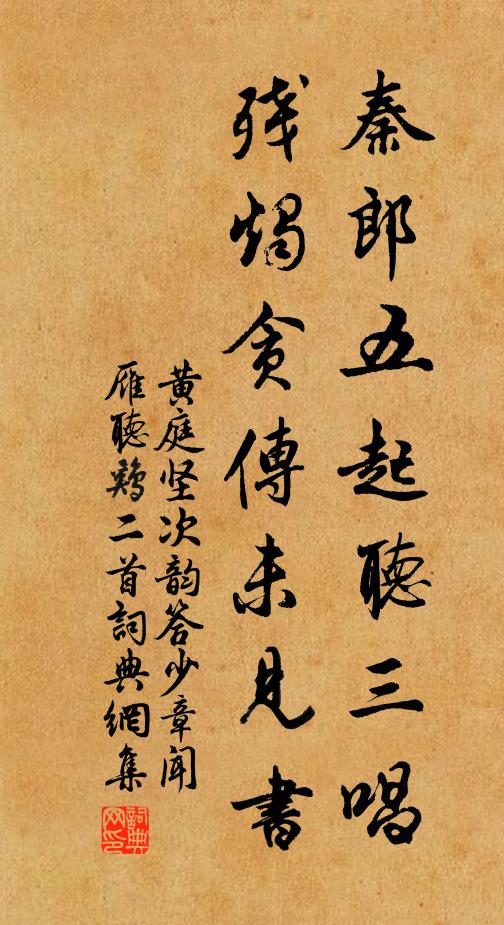 秦郎五起聽三唱
残燭貪傳未見書
黄庭坚次韵答少章聞
雁聽鷄二首詞典網集
詞典网印